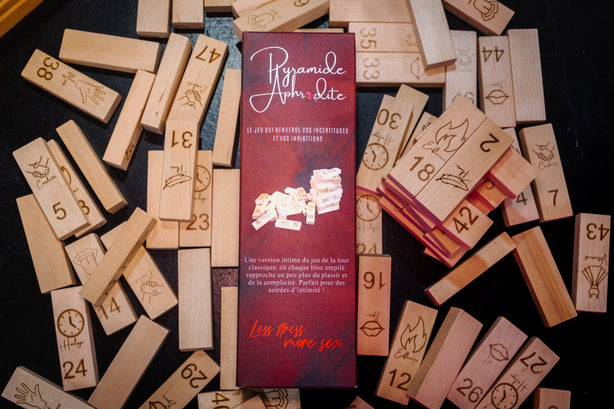 Pyramide
Aphrodite
LE JEU QUI RENVERSE VOS INCERTITUDES
ET VOS INHIBITIONS
Une version intime du jeu de la tour
classique, où chaque bloc empilé
rapproche un peu plus du plaisir et
de la complicité. Parfait pour des
soirées d'intimité !
Less stress
more sex
38
47
31
5
23
14
24
29
35
33
44
30
18
2
42
4
7
43
16
12
26
27